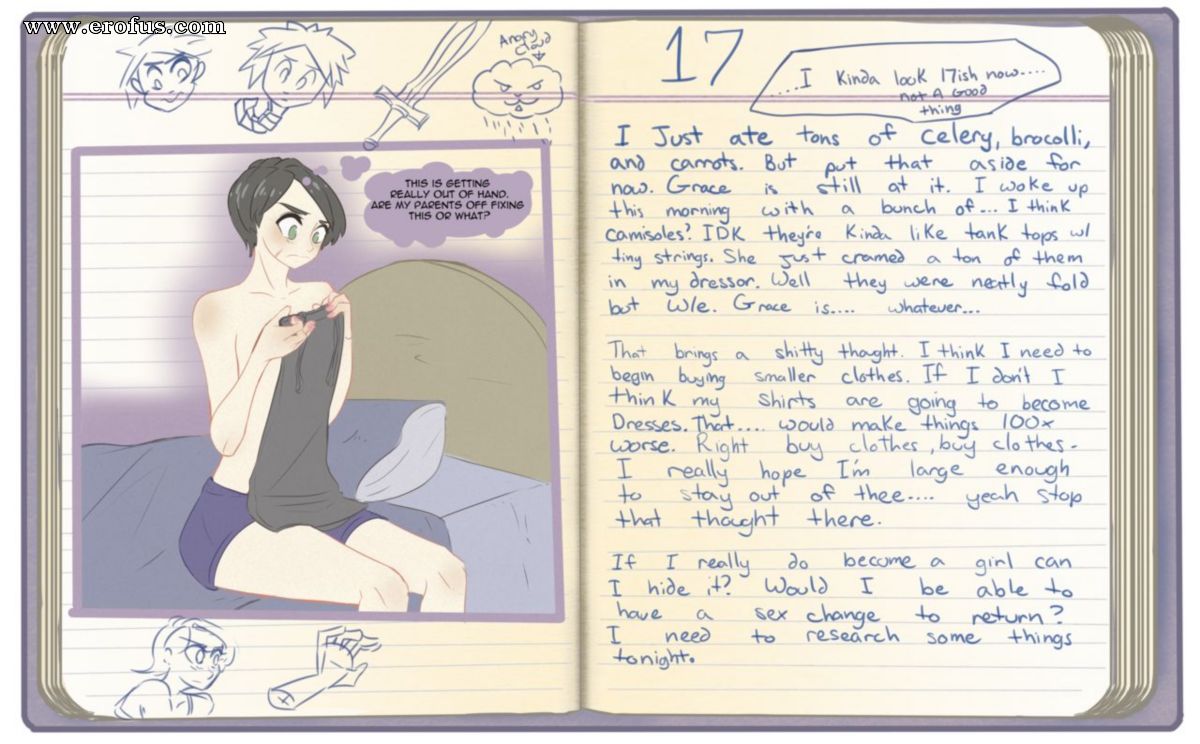 www.erofus.com
Angry
Cloud
THIS IS GETTING
REALLY OUT OF HAND.
ARE MY PARENTS OFF FIXING
THIS OR WHAT?
17
....I Kinda look 17ish now....
not A Good
thing
I Just ate tons of celery, brocolli,
and carrots. But put that aside for
now. Grace is still at it. I woke up
this morning with a bunch of... I think
camisoles? IDK they're Kinda like tank tops w/
tiny strings. She just cramed a ton of them
in my dressor. Well they were neatly fold
but w/e. Grace is.... whatever...
That brings a shitty thought. I think I need to
begin buying smaller clothes. If I don't I
think my shirts are going to become
Dresses. That.... would make things 100x
worse. Right buy clothes, buy clothes.
I really hope I'm large enough
to stay out of thee.... yeah stop
that thought there.
If I really do become a girl can
I hide it? Would I be able to
have a sex change to return?
I need to research some things
tonight.